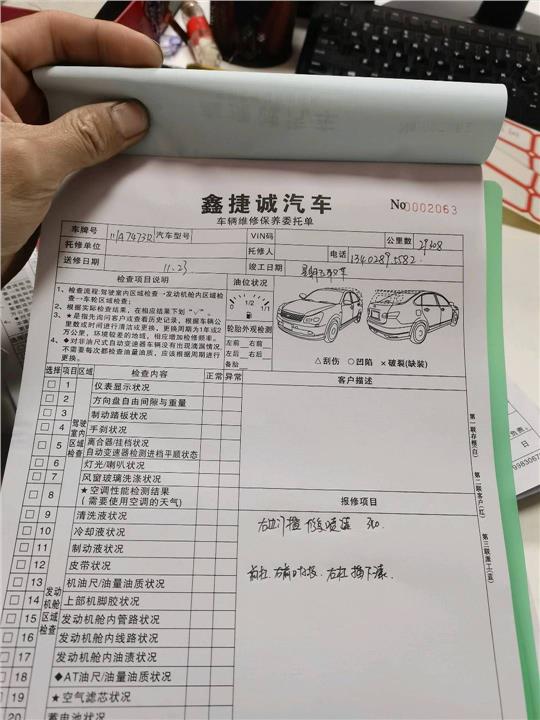 鑫捷诚汽车
No 0002063
车辆维修保养委托单
车牌号 汽车型号 VIN码 公里数
托修单位 托修人 电话 13402895582
送修日期 11.23 竣工日期
检查项目说明 油位状况
1、检查流程:驾驶室内区域检查→发动机舱内区域检查→车轮区域检查;
2、根据实际检查结果,在相应结果下划“√”。
3、★是指先询问客户或查看历史记录,根据车辆公里数或时间进行清洁或更换,更换周期为1年或2万公里,环境较差的地域,相应增加检修频率。
4、◆对非油尺式自动变速器车辆没有出现渗漏情况,不需要每次都检查油量油质,应该根据周期进行更换。
0 1/2 1/1
轮胎外观检测
左前 右前
左后 右后
备胎
△刮伤 ○凹陷 ×破裂(缺装)
选择 项目 区域 检查内容 正常 异常 客户描述
驾驶室内区域检查
1 仪表显示状况
2 方向盘自由间隙与重量
3 制动踏板状况
4 手刹状况
5 离合器/挂档状况
自动变速器检测进档平顺状态
6 灯光/喇叭状况
7 风窗玻璃洗涤状况
8 ★空调性能检测结果
(需要使用空调的天气)
报修项目
发动机舱区域检查
9 清洗液状况
10 冷却液状况
11 制动液状况
12 皮带状况
13 机油尺/油量油质状况
14 上部机脚胶状况
15 发动机舱内管路状况
16 发动机舱内线路状况
17 发动机舱内油渍状况
18 ◆AT油尺/油量油质状况
19 ★空气滤芯状况
20 蓄电池状况
第一联存根(白)
第二联客户(红)
第三联派工(蓝)